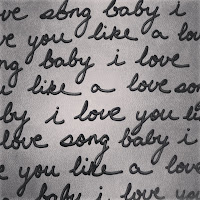 ove song baby i
ove you like a lov
ng baby i love
u like a love son
by i love you lik
love song baby i
e you like a love
baby i love you